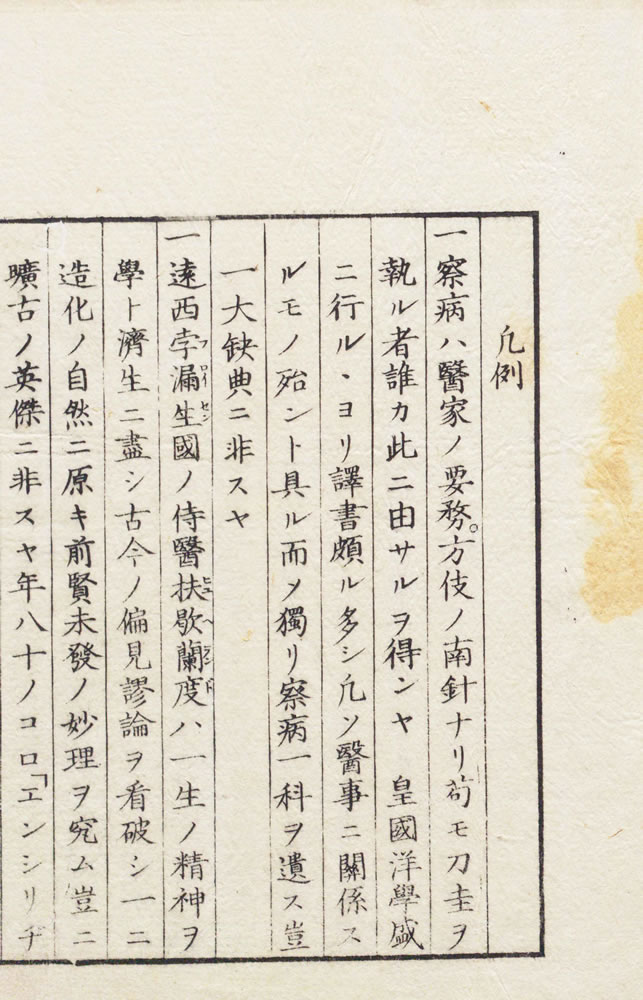 凢例
一察病ハ醫家ノ要務。方伎ノ南針ナリ苟モ刀圭ヲ
執ル者誰カ此ニ由サルヲ得ンヤ　皇國洋學盛
ニ行ルヽヨリ譯書頗ル多シ凢ソ醫事ニ關係ス
ルモノ殆ント具ル而メ獨リ察病一科ヲ遺ス豈
一大缺典ニ非スヤ
一遠西孛漏生國ノ侍醫扶歇蘭度ハ一生ノ精神ヲ
學ト濟生ニ盡シ古今ノ偏見謬論ヲ看破シ一ニ
造化ノ自然ニ原キ前賢未發ノ妙理ヲ究ム豈ニ
曠古ノ英傑ニ非スヤ年八十ノコロ「エンシリヂ